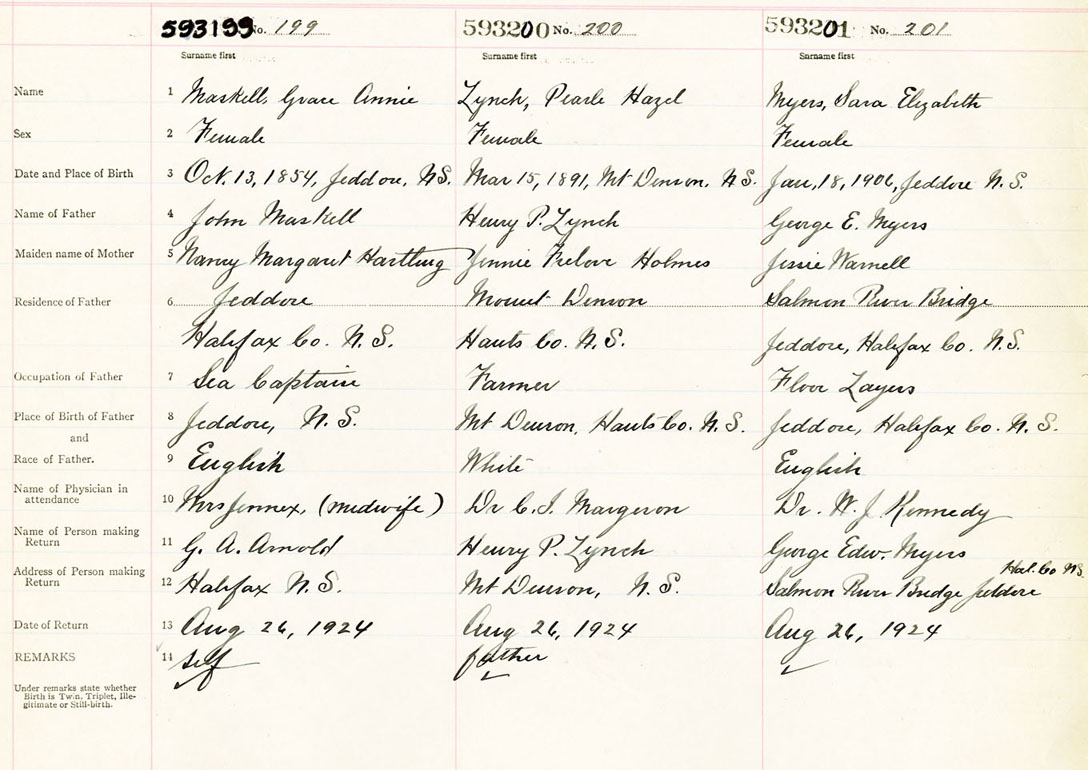 593199 No. 199 593200 No. 200 593201 No. 201
Surname first Surname first Surname first
Name 1 Maskell, Grace Annie Lynch, Pearle Hazel Myers, Sara Elizabeth
Sex 2 Female Female Female
Date and Place of Birth 3 Oct. 13, 1854, Jeddore, N.S. Mar 15, 1891, Mt Denson, N.S. Jan, 18, 1906, Jeddore N.S.
Name of Father 4 John Maskell Henry P. Lynch George E. Myers
Maiden name of Mother 5 Nancy Margaret Hartling Jennie Frelove Holmes Jessie Warnell
Residence of Father 6 Jeddore Mount Denson Salmon River Bridge
Halifax Co. N.S. Hants Co. N.S. Jeddore, Halifax Co. N.S.
Occupation of Father 7 Sea Captain Farmer Floor Layers
Place of Birth of Father 8 Jeddore, N.S. Mt Denson, Hants Co. N.S. Jeddore, Halifax Co. N.S.
and
Race of Father. 9 English White English
Name of Physician in
attendance 10 Mrs Jennex, (midwife) Dr C. I. Margeson Dr. W. J. Kennedy
Name of Person making
Return 11 G. A. Arnold Henry P. Lynch George Edw. Myers
Address of Person making Hal. Co NS.
Return 12 Halifax N.S. Mt Denson, N.S. Salmon River Bridge Jeddore
Date of Return 13 Aug 26, 1924 Aug 26, 1924 Aug 26, 1924
REMARKS 14 self father
Under remarks state whether
Birth is Twin, Triplet, Ille-
gitimate or Still-birth.